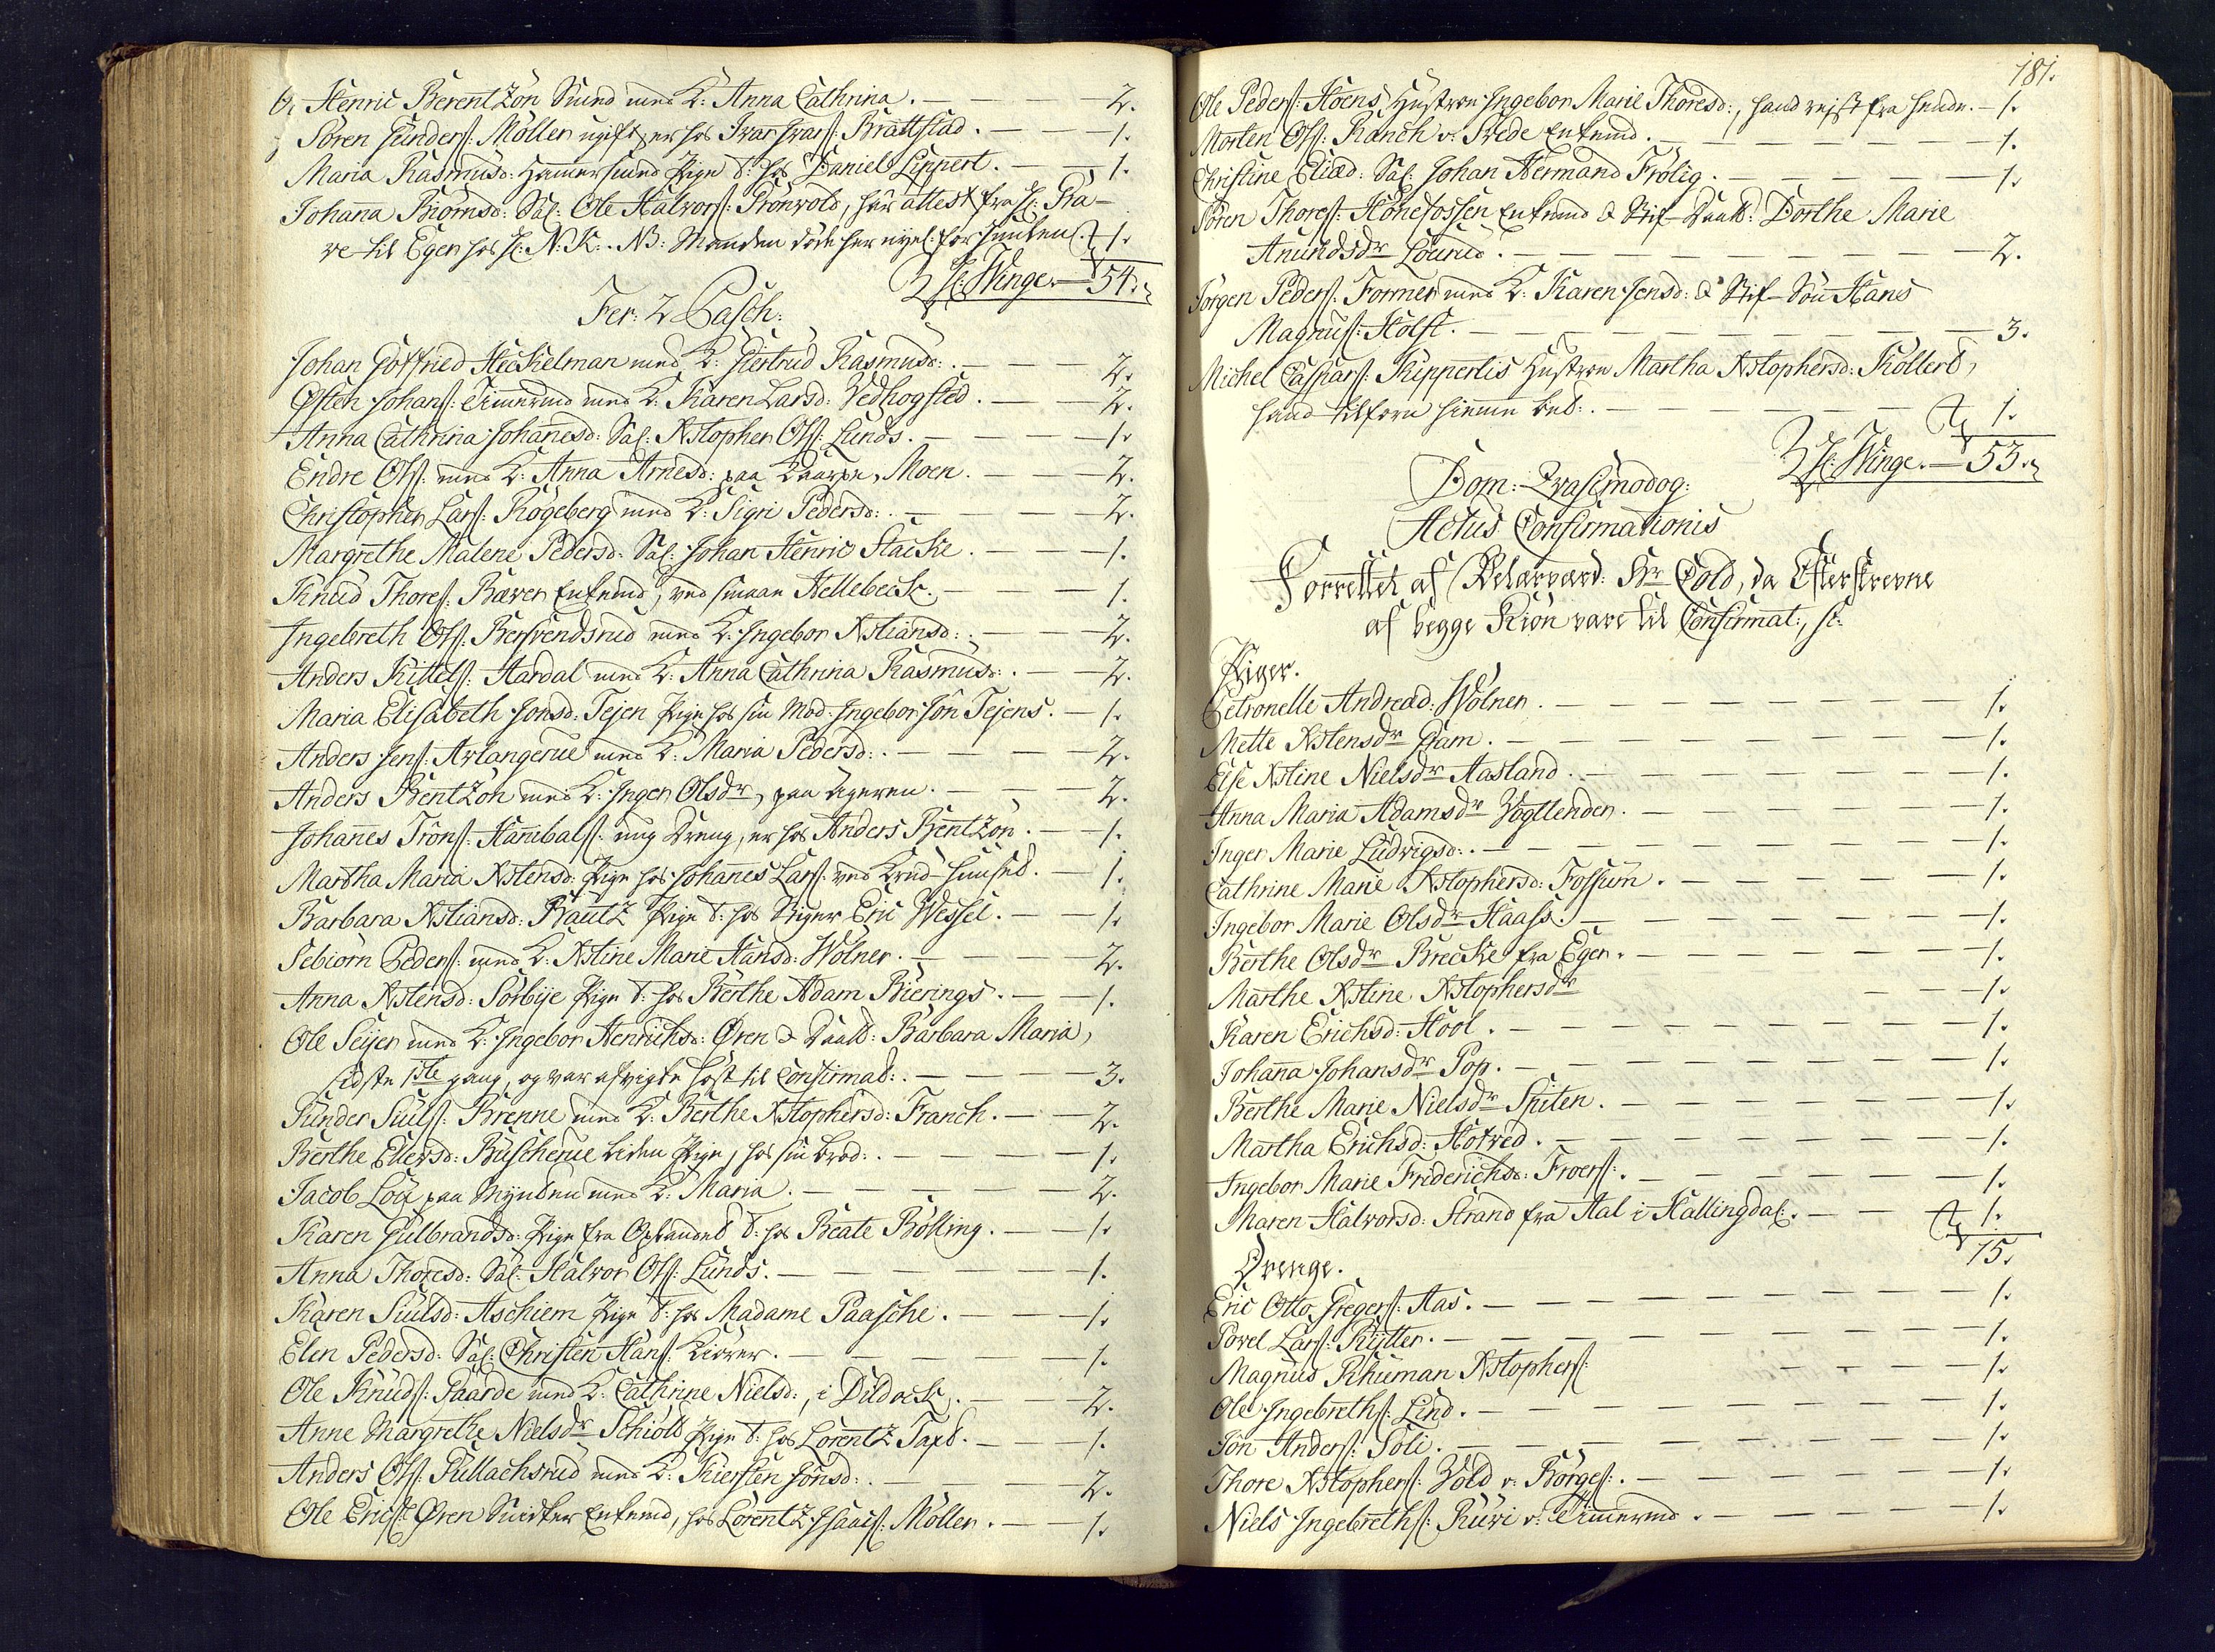 Henric Berentzøn Smed med K: Anna Cathrina. — 2.
Søren Gunders: Møller ugift, er hos Ivar Ivars: Brattstad. — 1.
Maria Rasmusd: Hammersmed Pige t: hos Daniel Lippert. — 1.
Johana Biørnsd: Sal: Ole Halvors: Grønvold, har attest fra H: Gra-
ve til Eger hos H: N. K. NB: Manden døde her nyel: for Juulen. 1.
H: Winge — 54.
Fer: 2 Pasch:
Johan Gotfried Heckelman med K: Giertrud Rasmusd: — 2.
Østen Johans: Timermd med K: Karen Larsd: Vedhogsted. — 2.
Anna Cathrina Johanesd: Sal: Xstopher Ols: Lunds. — 1.
Endre Ols: med K: Anna Arnesd: paa Moen. — 2.
Christopher Lars: Røgeberg med K: Sigri Pedersd: — 2.
Margrethe Malene Pedersd: Sal: Johan Henric Stacke. — 1.
Knud Thores: Bæver Enkemd, ved Hellebeck. — 1.
Ingebreth Ols: Bersvendsrud med K: Ingebor Xstiansd: — 2.
Anders Kittels: Hardal med K: Anna Cathrina Rasmusd: — 2.
Maria Elisabeth Jonsd: Tejen Pige hos sin Mod: Ingebor Jon Tejens. — 1.
Anders Jens: Arlangerue med K: Maria Pedersd: — 2.
Anders Bentzøn med K: Inger Olsdr, paa Ageren. — 2.
Johanes Trons: Hanibals: ung Dreng, er hos Anders Bentzøn. — 1.
Martha Maria Xstensd: Pige hos Johanes Lars: ved Krud-Huused. — 1.
Barbara Xstiansd: Bautz Pige t: hos Stiger Eric Wessel. — 1.
Sebiørn Peders: med K: Xstine Marie Hansd: Wølner. — 2.
Anna Xstensd: Sørbye Pige t: hos Berthe Adam Bierings. — 1.
Ole Seyer med K: Ingebor Henrichsd: Øren & Daatt: Barbara Maria,
sidste 1ste gang, og var afvigte Høst til Confirmat: — 3.
Gunder Siuls: Brenne med K: Berthe Xstophersd: Franch. — 2.
Berthe Ellersd: Buscherue liden Pige, hos sin Brod: — 1.
Jacob Loce paa Mynten med K: Maria. — 2.
Karen Gulbrandsd: Pige fra Oplandet t: hos Beate Bølling. — 1.
Anna Thoresd: Sal: Halvor Ols: Lunds. — 1.
Karen Siulsd: Aschiem Pige t: hos Madame Paasche. — 1.
Elen Pedersd: Sal: Christen Hans: Kiører. — 1.
Ole Knuds: Gaarde med K: Cathrine Nielsd:, i Dildack. — 2.
Anne Margrethe Nielsdr Schiøtt Pige t: hos Lorentz Taxt. — 1.
Anders Ols: Gullachsrud med K: Kiersten Jonsd: — 2.
Ole Erics: Øren Snidker Enkemd, hos Lorentz Isaacs: Møller. — 1.
181.
Ole Peders: Hoens Hustroe Ingebor Marie Thoresd:, hand rejst fra hende. — 1.
Morten Ols: Ranch v. Svede Enkemd. — 1.
Christine Eliæd: Sal: Johan Hermand Frølig. — 1.
Søren Thores: Hønefossen Enkemd & Stif-Daatt: Dorthe Marie
Anundsdr Løurud. — 2.
Jørgen Peders: Former med K: Karen Jensd: & Stif-Søn Hans
Magnus: Holst. — 3.
Michel Caspars: Kippertis Hustroe Martha Xstophersd: Kollert,
hand tilforn hiemme ber: — 1.
H: Winge. — 53.
Dom: Qvasimodog:
Actus Confirmationis
Forrettet af Velærværd: Hr Cold, da Efterskrevne
af begge Kiøn vare til Confirmat:, sc:
Piger.
Petronelle Andread: Wølner. — 1.
Mette Xstensdr Gam. — 1.
Else Xstine Nielsdr Aasland. — 1.
Anna Maria Adamsdr Vogtlender. — 1.
Inger Marie Ludvigsd: — 1.
Cathrine Marie Xstophersd: Fossum. — 1.
Ingebor Marie Olsdr Haass. — 1.
Berthe Olsdr Brecke fra Eger. — 1.
Marthe Xstine Xstophersdr — 1.
Karen Erichsd: Hool. — 1.
Johana Johansdr Pop. — 1.
Berthe Marie Nielsdr Spiten. — 1.
Martha Erichsd: Hotved. — 1.
Ingebor Marie Friderichsd: Froers: — 1.
Maren Halvorsd: Strand fra Aal i Hallingdal. — 1.
15.
Drenge.
Eric Otto Gregers: Aas. — 1.
Povel Lars: Rytter. — 1.
Magnus Rhuman Xstophers: — 1.
Ole Ingebreths: Lind. — 1.
Jon Anders: Soli. — 1.
Thore Xstophers: Vold v. Børges: — 1.
Niels Ingebreths: Ruvi v. Timermd. — 1.